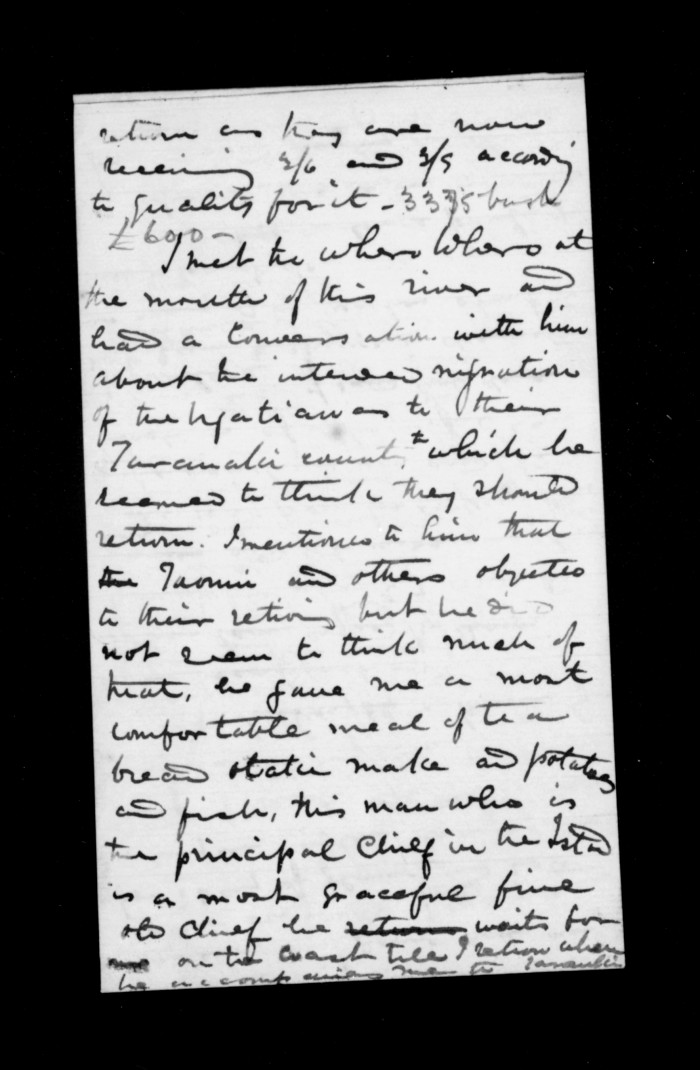 return as they are now
receiving 3/6 and 3/9 according
to quality for it - 3335 bush
£600 -
I met te whero whero at
the mouth of this river and
had a conversation with him
about the intended migration
of the Ngatiawas to their
Taranaki country which he
seemed to think they should
return. I mentioned to him that
the Taonui and others objected
to their retiring but he did
not seem to think much of
that, he gave me a most
comfortable meal of tea
bread otaki make and potatoes
and fish, this man who is
the principal Chief in the Island
is a most graceful fine
old Chief he return waits for
me on the coast till I return when
he accompanies me to Taranaki